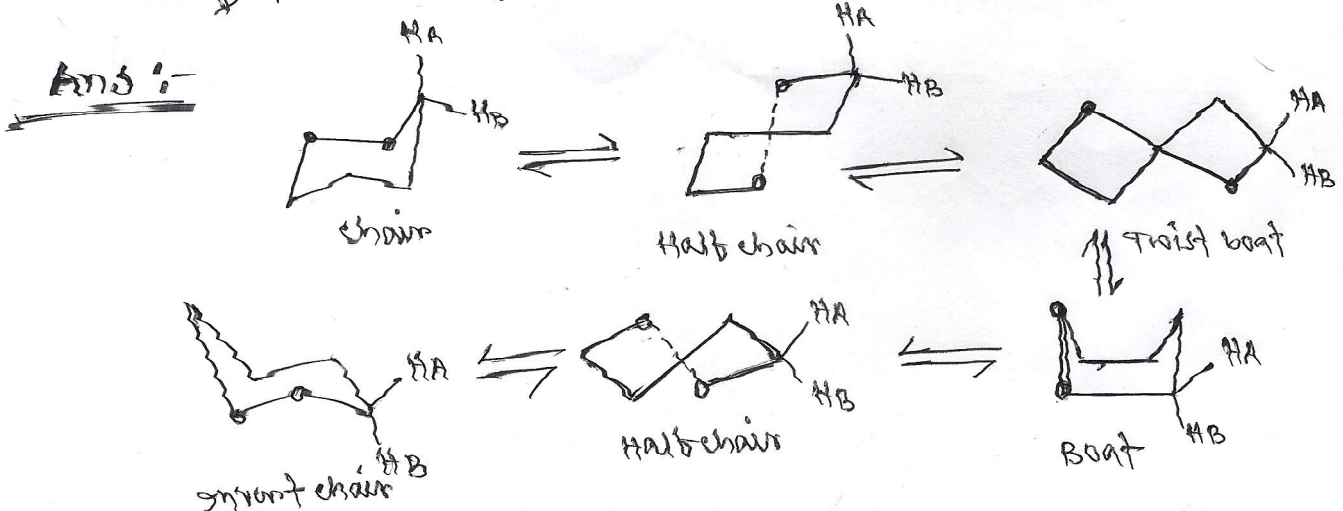 Ans :-
HA
HB
chair
HA
HB
Half chair
HA
HB
Twist boat
HA
HB
Invert chair
HA
HB
Half chair
HA
HB
Boat